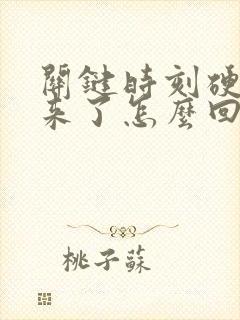 關鍵時刻硬
來了怎麼回
桃子蘇